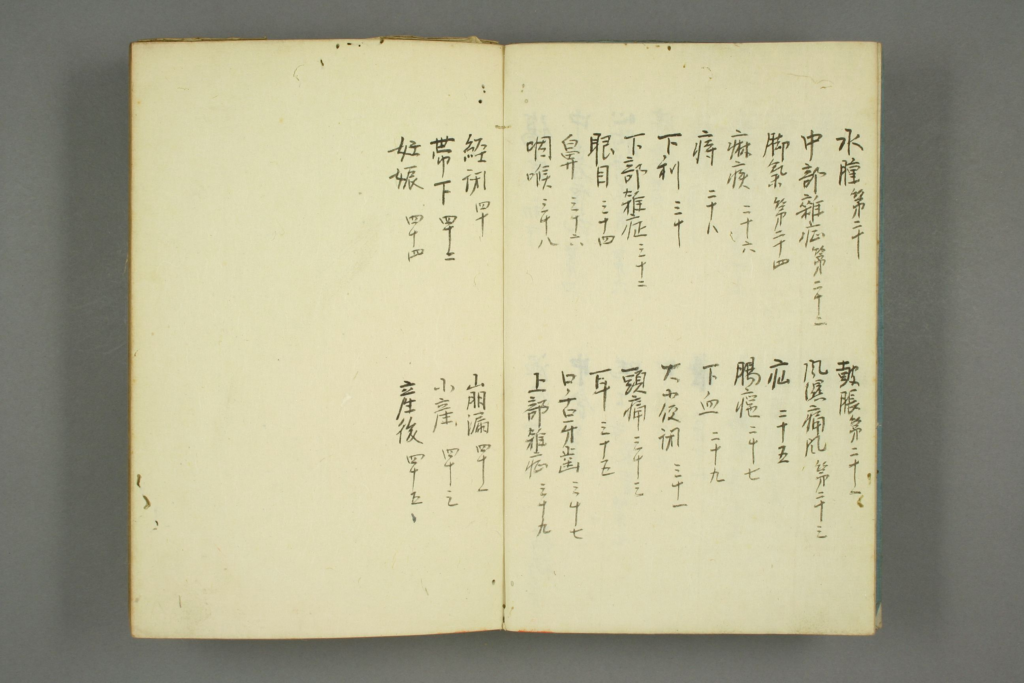 水腫第二十
皷脹第二十一
中部雜症第二十二
風湿痛風第二十三
脚氣第二十四
疝二十五
麻疾二十六
腸癰二十七
痔二十八
下血二十九
下利三十
大小便閉三十一
下部雑症三十二
頭痛三十三
眼目三十四
耳三十五
鼻三十六
口舌牙歯三十七
咽喉三十八
上部雑症三十九
経閉四十
崩漏四十一
帯下四十二
小産四十三
妊娠四十四
産後四十五